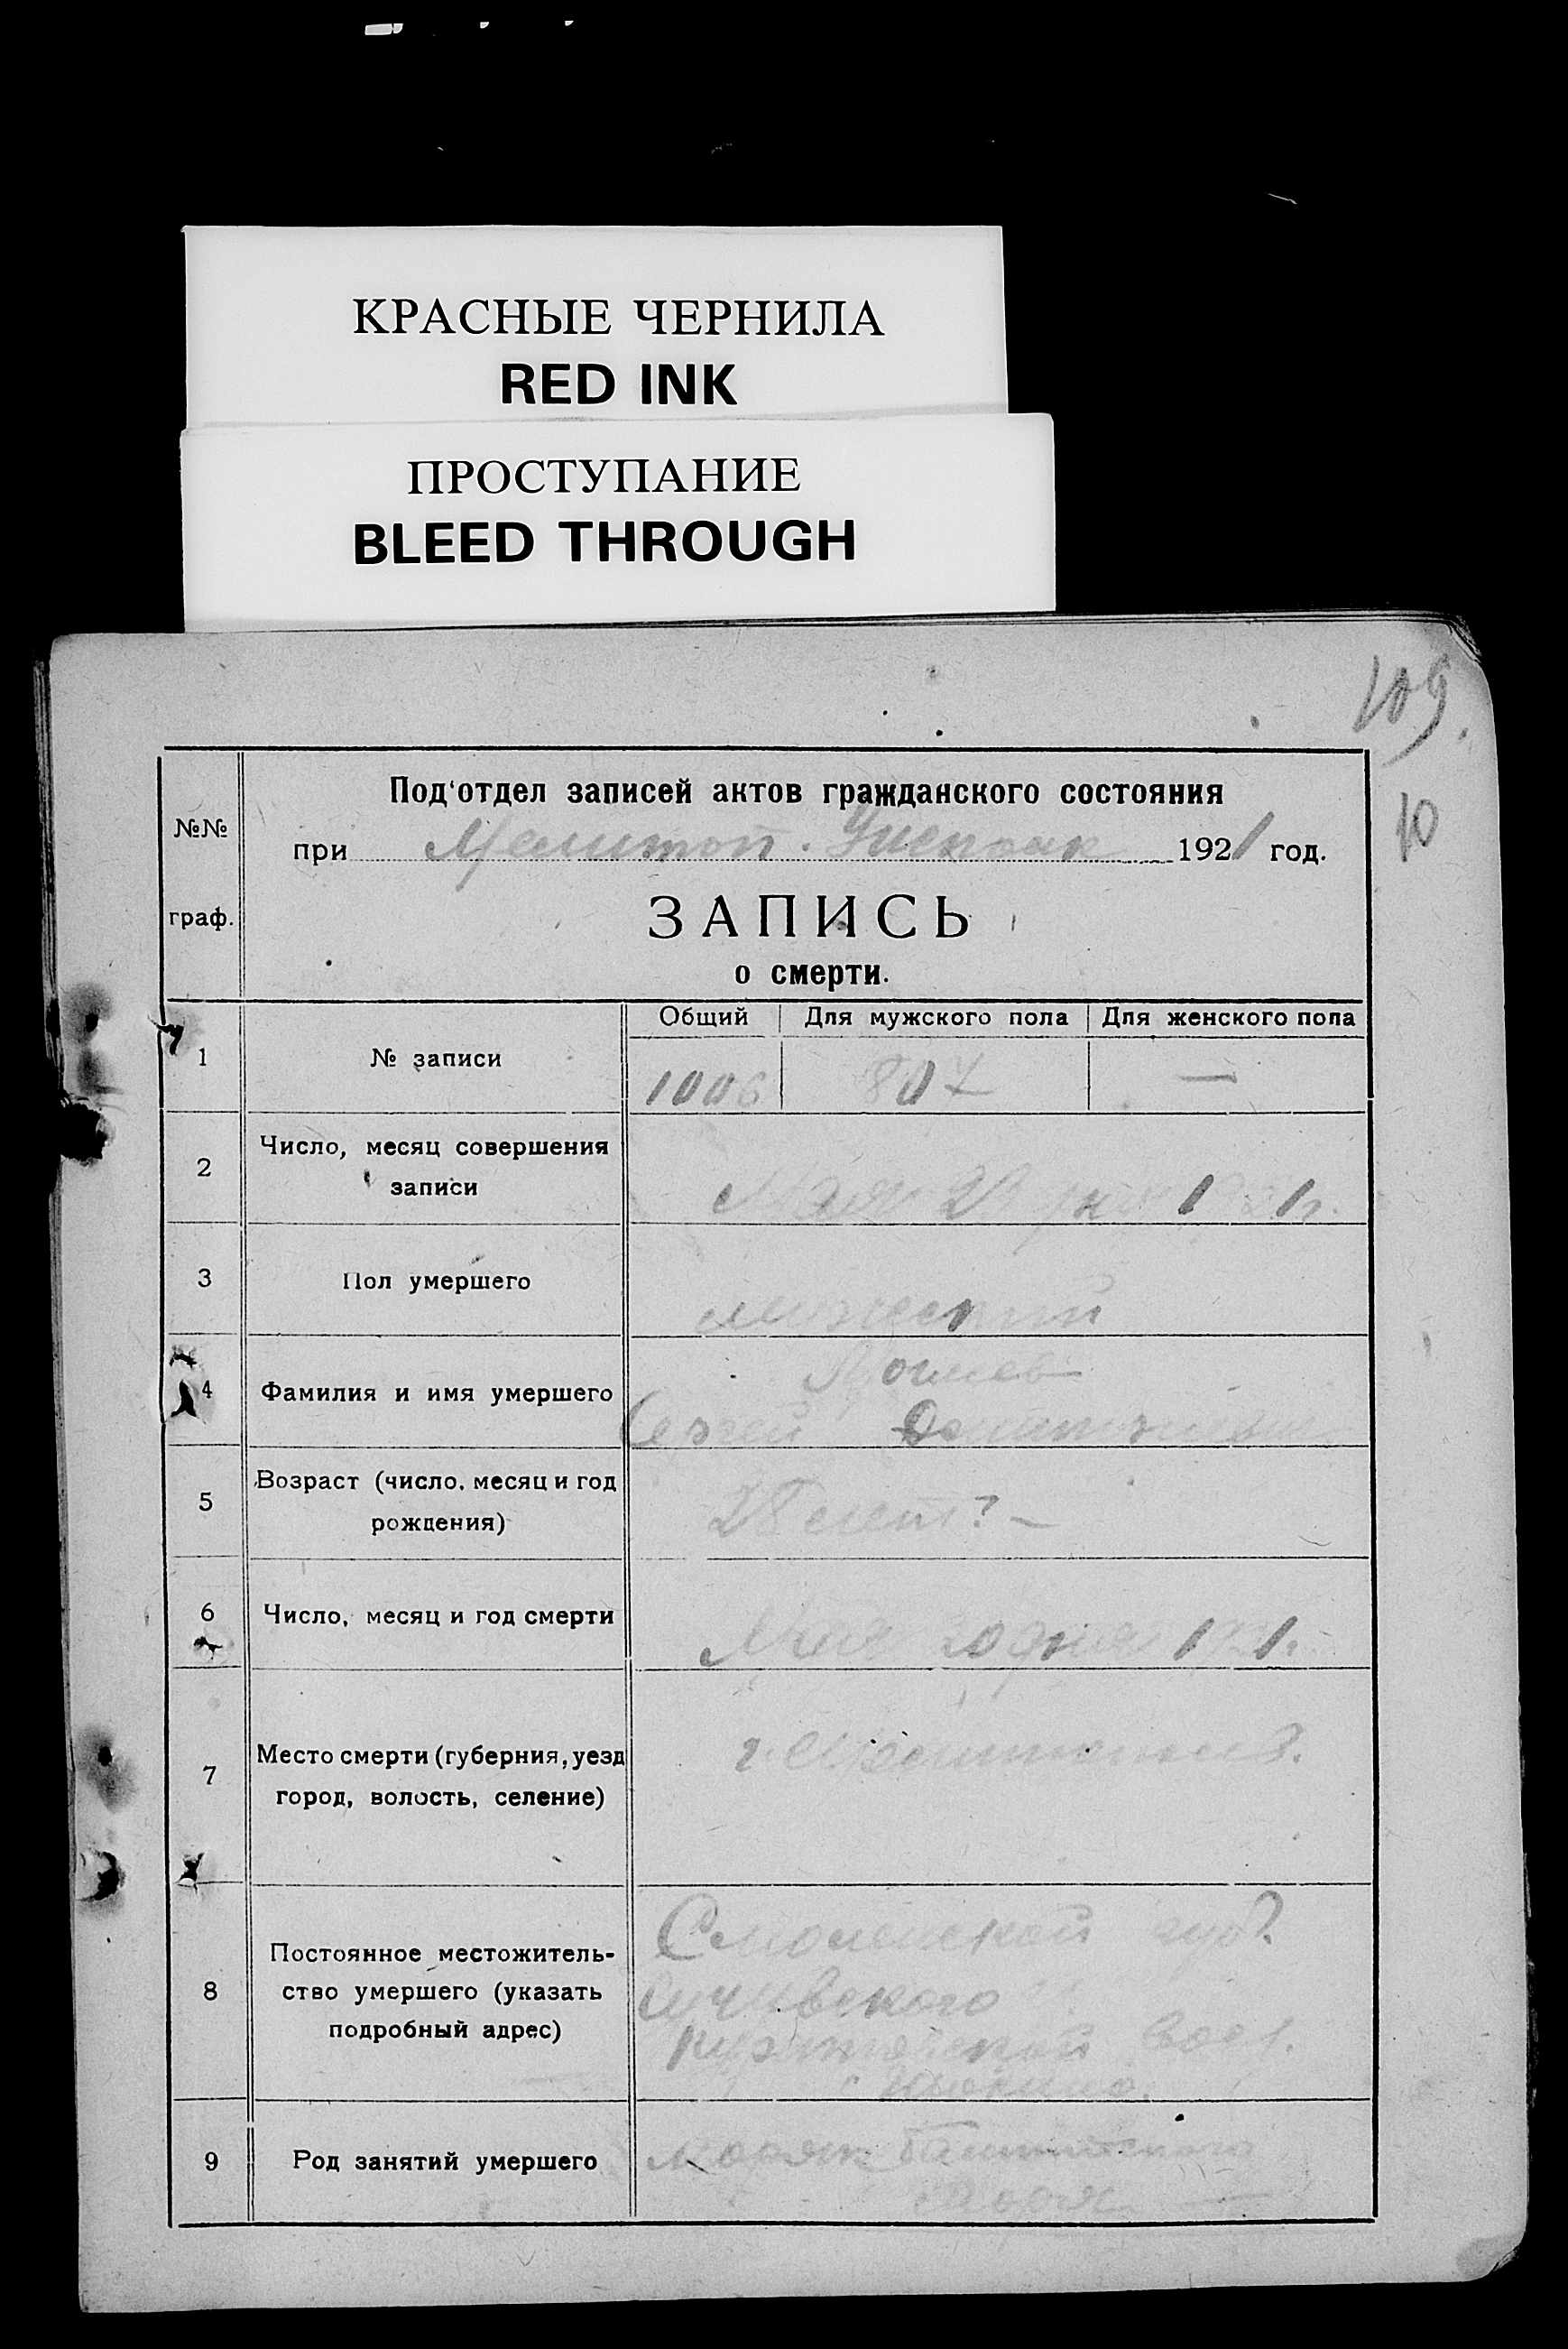 КРАСНЫЕ ЧЕРНИЛА
RED INK
ПРОСТУПАНИЕ
BLEED THROUGH
109.
10
№№
граф.
Под'отдел записей актов гражданского состояния
при Мелитоп. Уисполк 1921 год.
ЗАПИСЬ
о смерти.
Общий Для мужского пола Для женского пола
1 № записи 1006 807 —
2 Число, месяц совершения
записи
Мая
3 Пол умершего мужской
4 Фамилия и имя умершего
Сергей
5 Возраст (число, месяц и год
рождения)
28 лет? —
6 Число, месяц и год смерти Мая 20 дня 1921.
7 Место смерти (губерния, уезд
город, волость, селение)
г. Мелитополь
8 Постоянное местожитель-
ство умершего (указать
подробный адрес)
Смоленской губ.
9 Род занятий умершего моряк Балтийского
моря